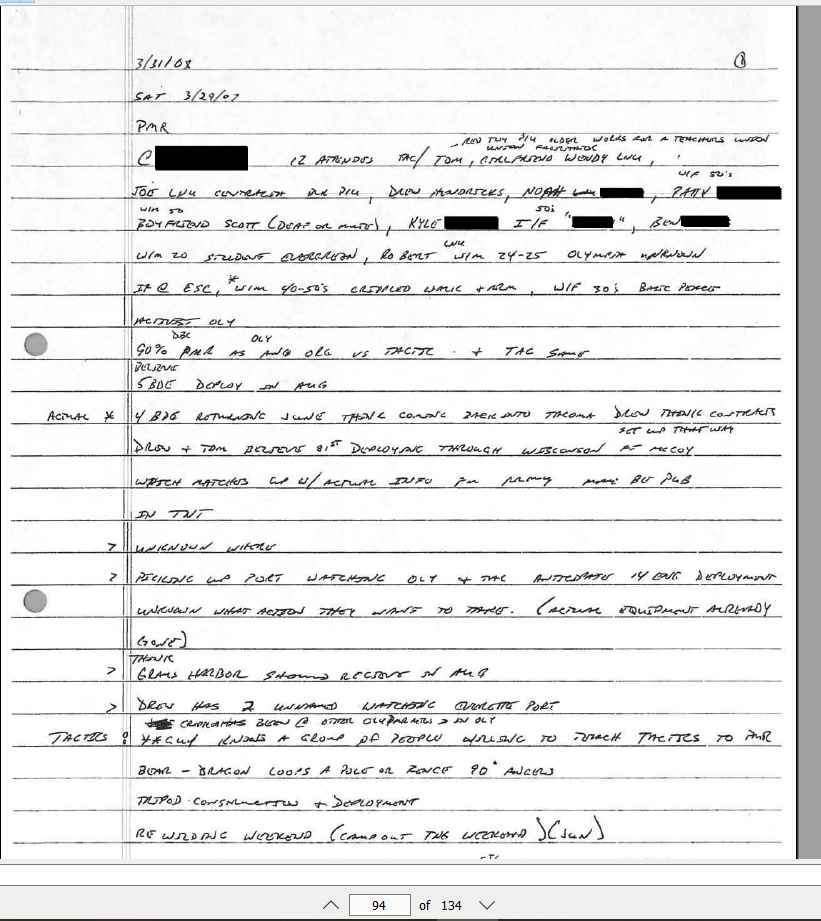 3/31/08 ①
SAT 3/29/07
PMR
- RED TOY P/U OLDER WORKS FOR A TEACHERS UNION
UNION FACILITATOR
C 12 ATTENDEES TAC/ TOM, GIRLFRIEND WENDY LNU,
W/F 50'S
JOE LNU CONTRACTOR P/U, DREW HENDRICKS, NOAH LNU, PATTY
W/M 50 50'S
BOYFRIEND SCOTT (DEAF OR MUTE), KYLE I/F " ", BEN
LNU
W/M 20 STUDENT EVERGREEN, ROBERT W/M 24-25 OLYMPIA UNKNOWN
IF @ ESC, *W/M 40-50'S CRIPPLED WALK + ARM, W/F 30'S BASIC PEACE
ACTIVIST OLY
OLY
90% PMR AS ANG ORG VS TACTIC. + TAC SAME
BELIEVE
5 BDE DEPLOY IN AUG
ACTUAL * 4 BDE RETURNING JUNE THINK COMING BACK INTO TACOMA DREW THINK CONTRACTS
SET UP THAT WAY
DREW + TOM BELIEVE 81ST DEPLOYING THROUGH WISCONSON FT MCCOY
WHICH MATCHES UP W/ ACTUAL INFO BE PUB
IN TNT
> UNKNOWN WHERE
? PICKING UP PORT WATCHING OLY + TAC ANTICIPATE 14 ENG DEPLOYMENT
UNKNOWN WHAT ACTION THEY WANT TO TAKE. (ACTUAL EQUIPMENT ALREADY
GONE)
THINK
> GRAYS HARBOR SHOULD RECIEVE IN AUG
> DREW HAS 2 UNNAMED WATCHING EVERETTE PORT
CRIPPLED HAS BEEN @ OTHER OLY PMR MTGS > IN OLY
TACTICS : **GUY KNOWS A GROUP OF PEOPLE WILLING TO TEACH TACTICS TO PMR
BEAR - DRAGON LOOPS A POLE OR FENCE 90° ANGLES
TRIPOD CONSTRUCTION + DEPLOYMENT
REWILDING WEEKEND (CAMPOUT THIS WEEKEND) (SUN)
94 of 134